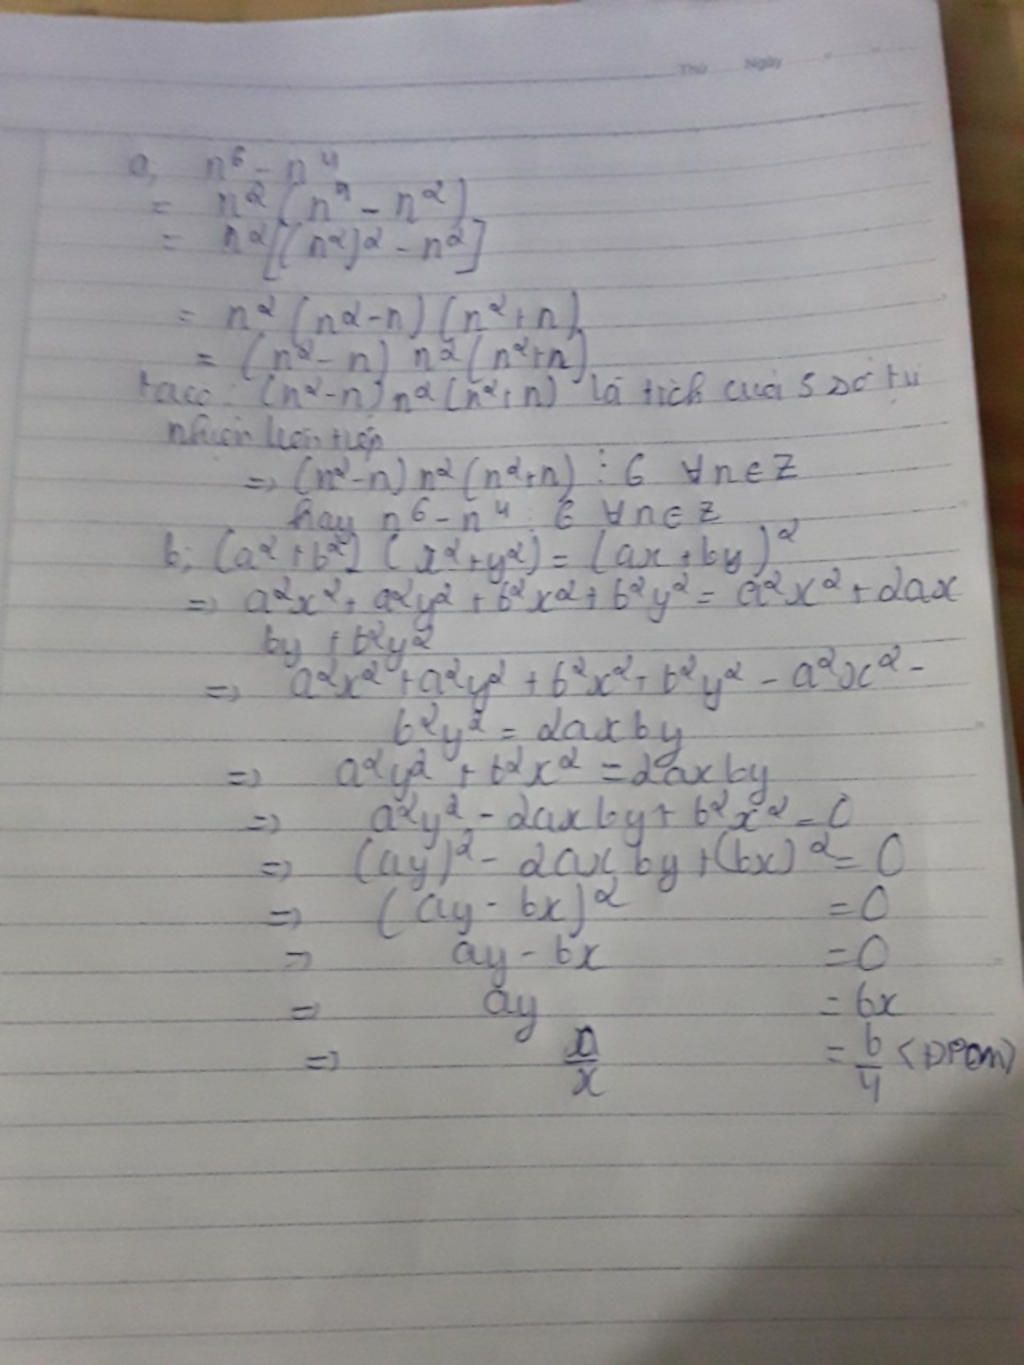 Thứ Ngày
a, n⁶ - n⁴
= n² (n⁴ - n²)
= n² [(n²)² - n²]
= n² (n² - n) (n² + n)
= (n² - n) n² (n² + n)
ta có: (n² - n) n² (n² + n) là tích của 5 số tự
nhiên liên tiếp
=> (n² - n) n² (n² + n) ⋮ 6 ∀n∈Z
hay n⁶ - n⁴ ⋮ 6 ∀n∈Z
b, (a² + b²) (x² + y²) = (ax + by)²
=> a²x² + a²y² + b²x² + b²y² = a²x² + 2ax
by + b²y²
=> a²x² + a²y² + b²x² + b²y² - a²x² -
b²y² = 2axby
=> a²y² + b²x² = 2axby
=> a²y² - 2axby + b²x² = 0
=> (ay)² - 2ax by + (bx)² = 0
=> (ay - bx)² = 0
=> ay - bx = 0
= ay = bx
=> a/x = b/y (ĐPCM)